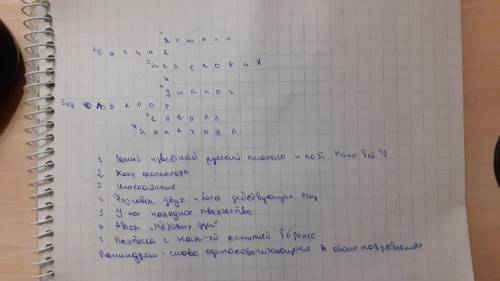 1 П У Ш К И Н
2 Б Ы Л И Н А
3 А Л Л Е Г О Р И Я
4 Д И А Л О Г
6 Г О Г О Л Ь
7 А Х М А Т О В А
1 Самый известный русский писатель и поэт.
2 Жанр фольклора
3 Иносказание
4 Разговор двух и более действующих лиц
5 народное творчество
6 Автор "Мёртвых душ"
7 Поэтесса с фамилией Горенко
Палиндром - слова одинаково читающиеся в обоих направлениях